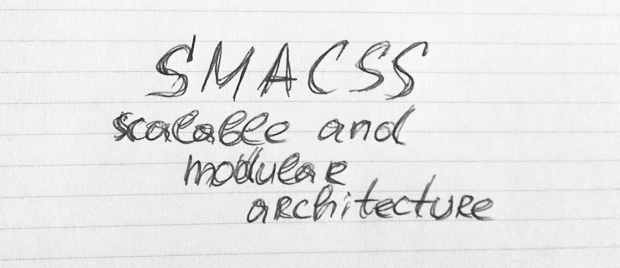 SMACSS
scalable and
modular
architecture